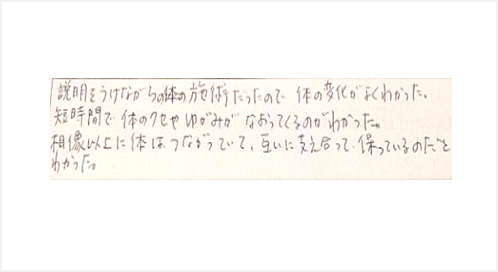 説明をうけながらの体の施術だったので 体の変化がよくわかった。
短時間で体のクセやゆがみがなおってくるのがわかった。
相像以上に体はつながっていて、互いに支え合って保っているのだと
わかった。